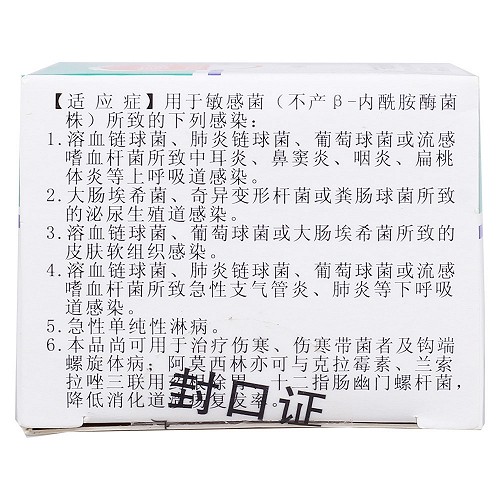 【适应症】用于敏感菌（不产β-内酰胺酶菌
株）所致的下列感染：
1.溶血链球菌、肺炎链球菌、葡萄球菌或流感
嗜血杆菌所致中耳炎、鼻窦炎、咽炎、扁桃
体炎等上呼吸道感染。
2.大肠埃希菌、奇异变形杆菌或粪肠球菌所致
的泌尿生殖道感染。
3.溶血链球菌、葡萄球菌或大肠埃希菌所致的
皮肤软组织感染。
4.溶血链球菌、肺炎链球菌、葡萄球菌或流感
嗜血杆菌所致急性支气管炎、肺炎等下呼吸
道感染。
5.急性单纯性淋病。
6.本品尚可用于治疗伤寒、伤寒带菌者及钩端
螺旋体病；阿莫西林亦可与克拉霉素、兰索
拉唑三联用药根除胃、十二指肠幽门螺杆菌，
降低消化道溃疡复发率。
封口证